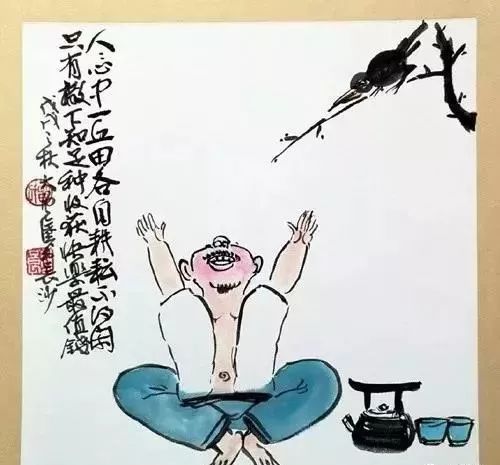 人心中一丘田各自耕耘不得闲
只有撒下知足种收获快乐最值钱
戊戌之秋 大 长沙